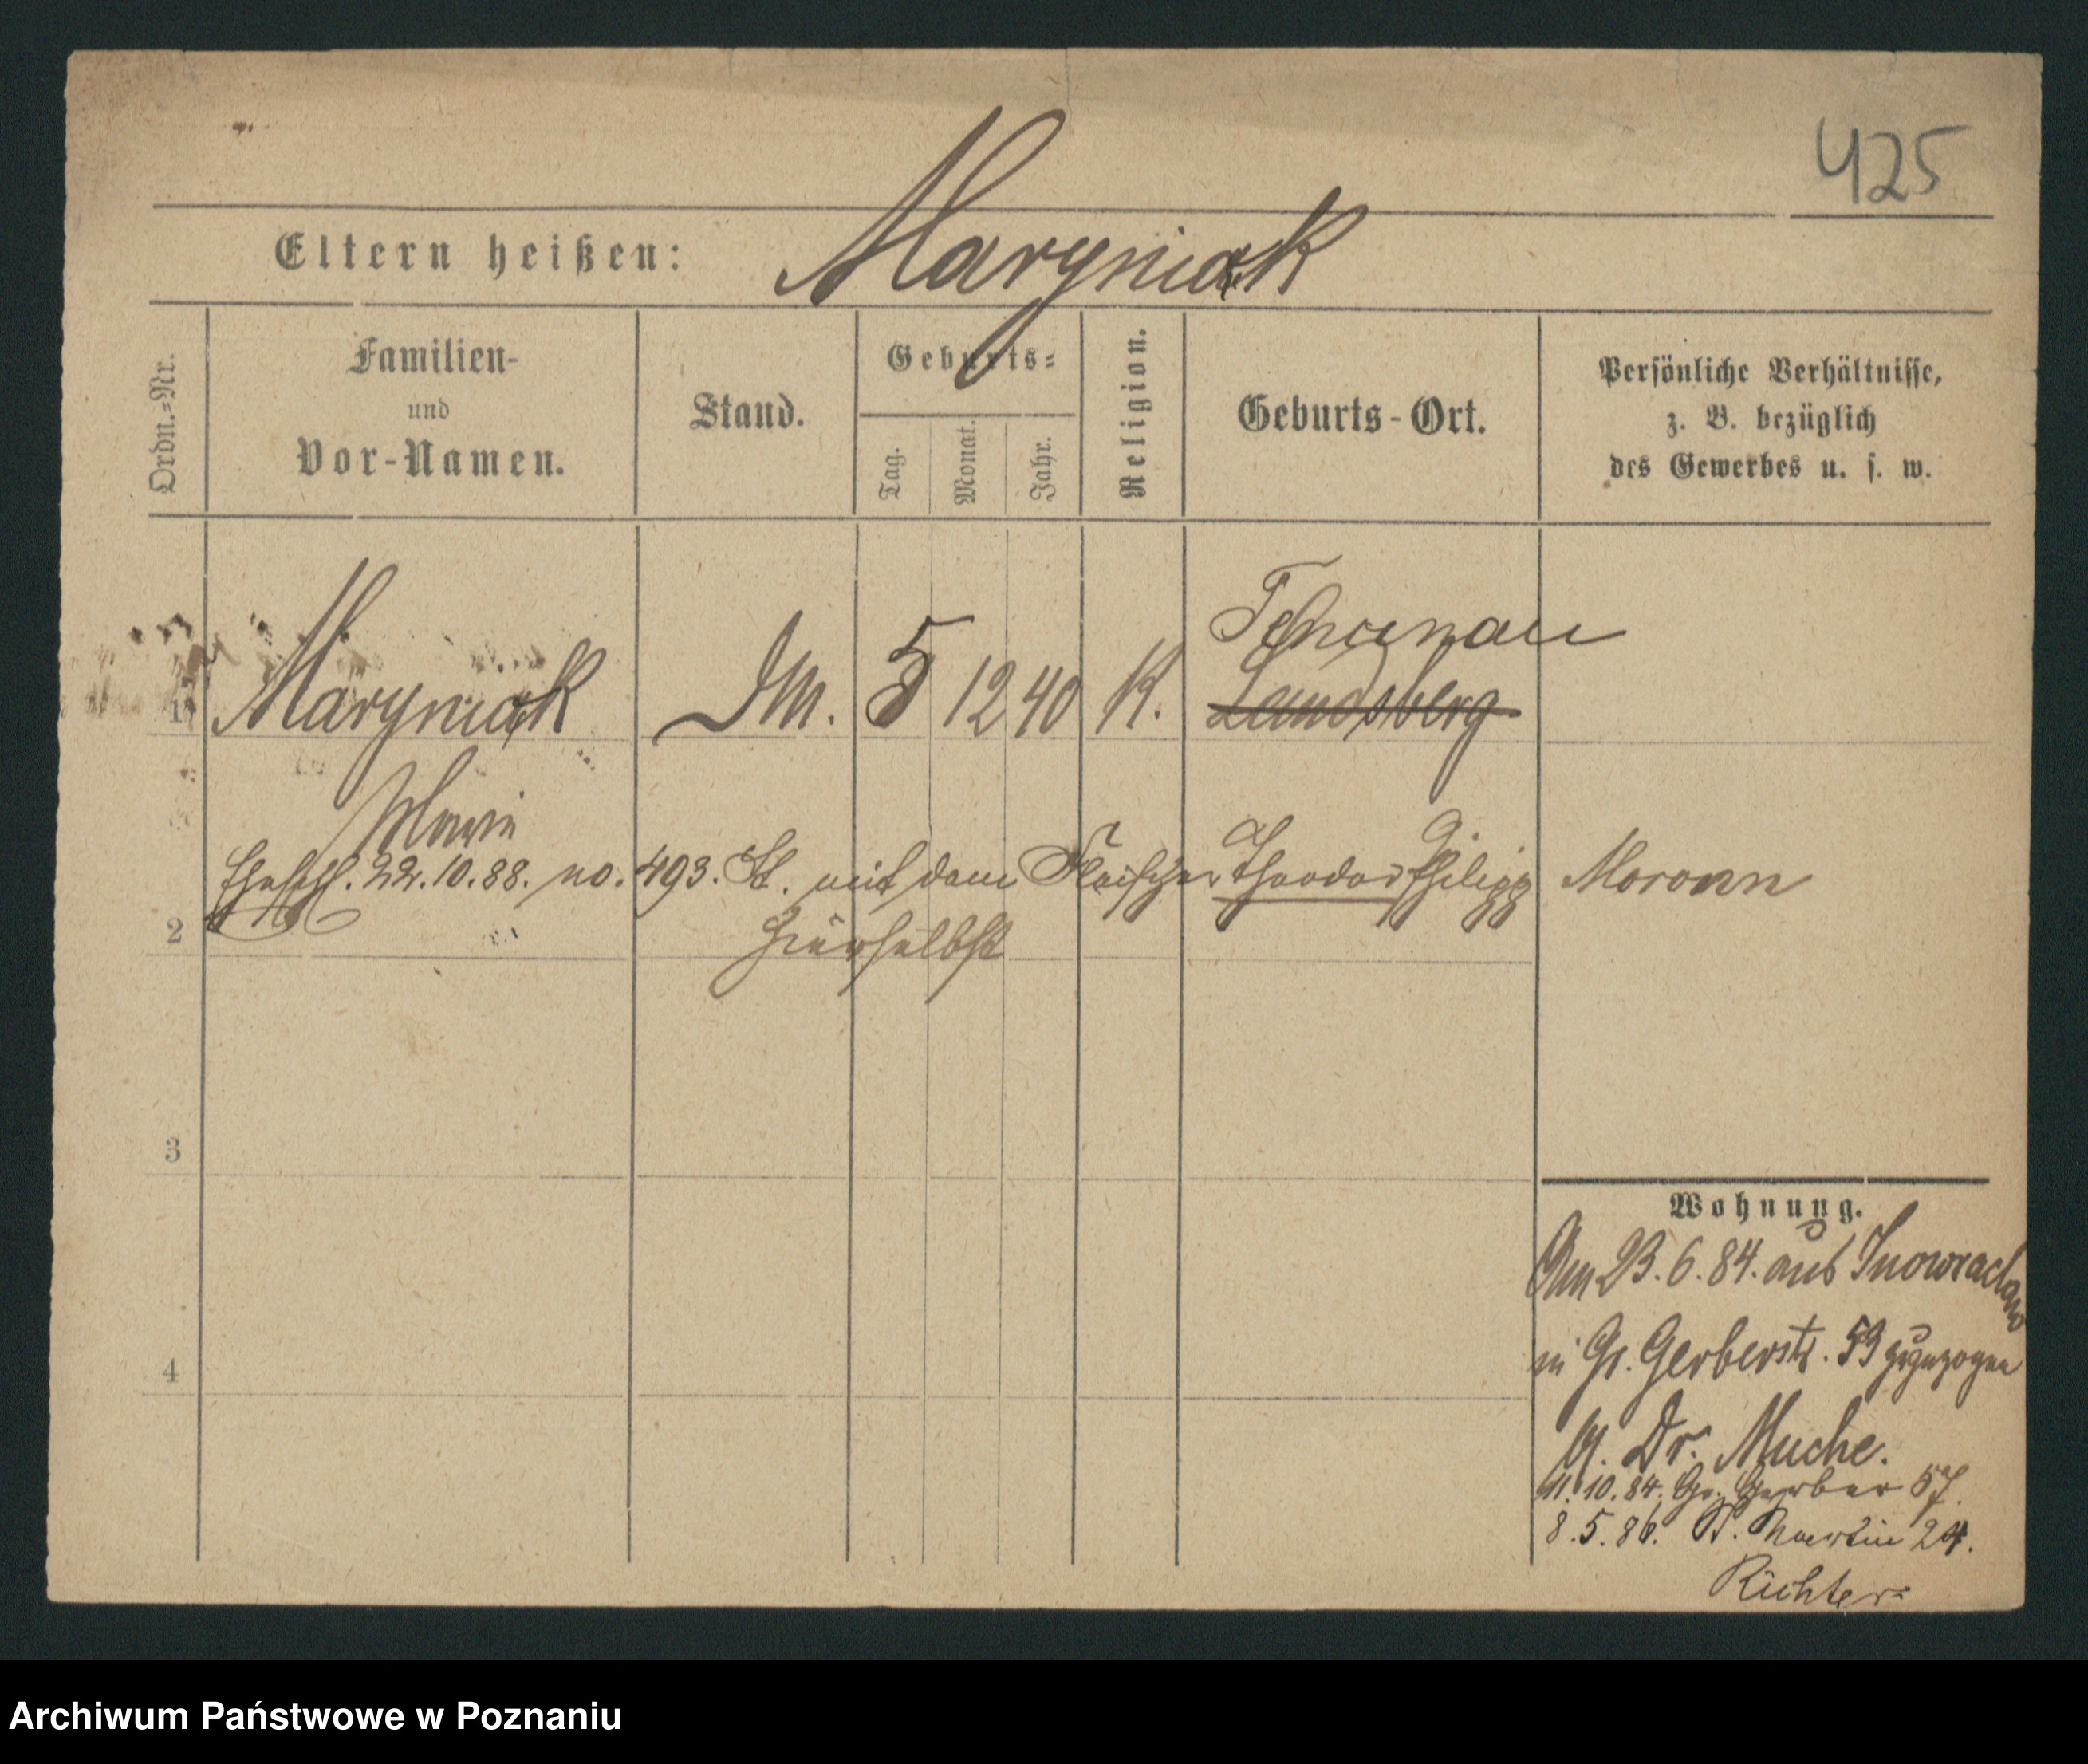 425
Eltern heißen: Maryniak
Ordn.=Nr.
Familien-
und
Vor-Namen.
Stand.
Geburts=
Tag.
Monat.
Jahr.
Religion.
Geburts-Ort.
Persönliche Verhältnisse,
z. B. bezüglich
des Gewerbes u. s. w.
1 Maryniak 5 12 40 K.
Landsberg
Marie
22.10.88. no. 493. St. mit dem Fleischer Theodor Philipp Moronn
2 hierselbst
3
4
Wohnung.
Am 23.6.84. aus Inowraclaw
in Gr. Gerberstr. 53 zugezogen
Dr. Muche.
11.10.84. Gr. Gerber 57.
8.5.86. St. Martin 24.
Richter
Archiwum Państwowe w Poznaniu